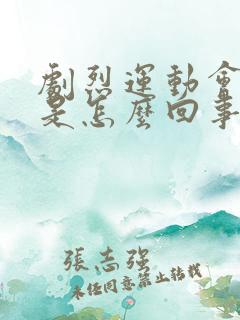 劇烈運動會
是怎麼回事
張志強
未经同意禁止转载